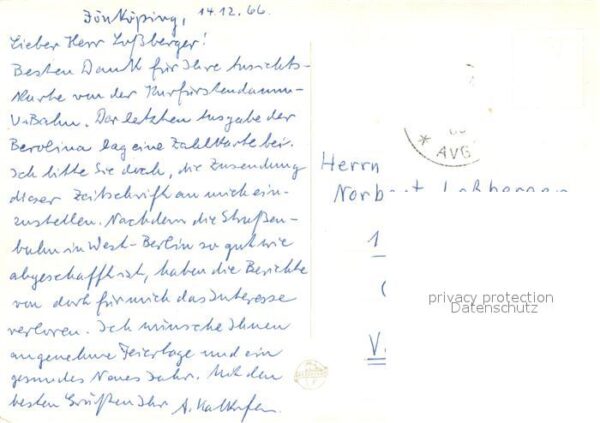 Jönköping, 14.12.66.
Lieber Herr Loßberger!
Besten Dank für Ihre Ansichts-
Karte von der Kurfürstendamm-
U-Bahn. Der letzten Ausgabe der
Berolina lag eine Zahlkarte bei.
Ich bitte Sie doch, die Zusendung
dieser Zeitschrift an mich ein-
zustellen. Nachdem die Straßen-
bahn in West-Berlin so gut wie
abgeschafft ist, haben die Berichte
von dort für mich das Interesse
verloren. Ich wünsche Ihnen
angenehme Feiertage und ein
gesundes Neues Jahr. Mit den
besten Grüßen Ihr A.
AVG
Herrn
Norbert Loßberger
1
V
privacy protection
Datenschutz